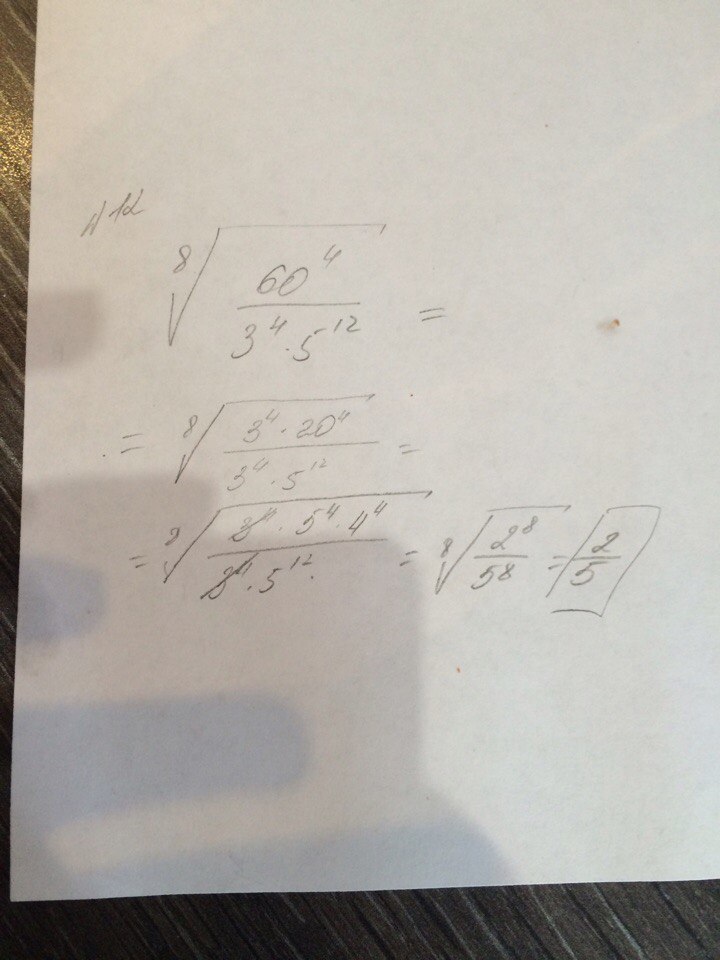 №12
⁸√(60⁴ / (3⁴ · 5¹²)) =
= ⁸√((3⁴ · 20⁴) / (3⁴ · 5¹²)) =
= ⁸√((3⁴ · 5⁴ · 4⁴) / (3⁴ · 5¹²)) = ⁸√(2⁸ / 5⁸) = 2/5